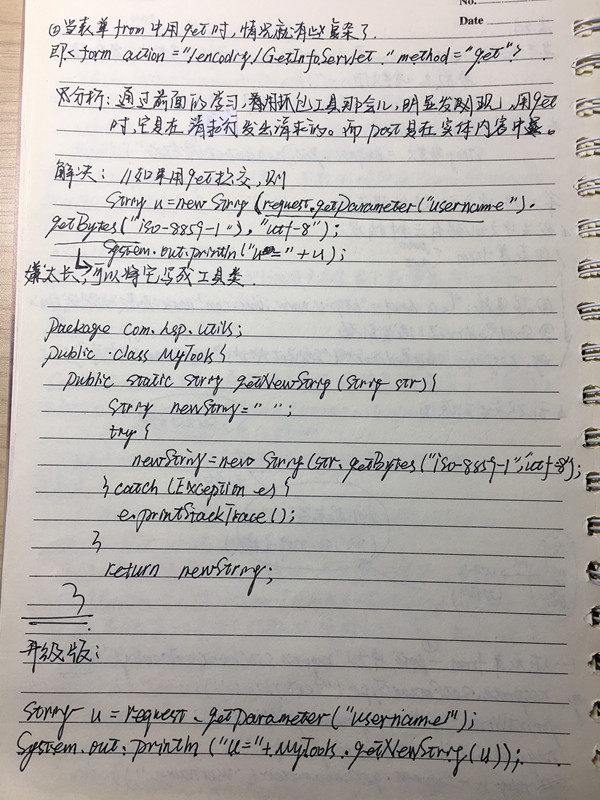 No.
Date
②当表单from中用get时,情况就有些复杂了.
即<form action="/encodrg/GetInfoServlet." method="get">
分析:通过前面的学习,看用抓包工具那会儿,明显发现,用get
时,它是在请求行发出请求的。而post是在实体内容中。
解决: //如果用get提交,则
String u=new String(request.getParameter("username").
getBytes("iso-8859-1"),"utf-8");
System.out.println("u="+u);
嫌太长,可以将它写成工具类.
package com.hsp.utils;
public class MyTools{
public static String getNewString(String str){
String newString=" ";
try{
newString=new String(str.getBytes("iso-8859-1","utf-8);
}catch(Exception e){
e.printStackTrace();
}
return newString;
}
升级版:
String u=request.getParameter("username");
System.out.println("u="+MyTools.getNewString(u));